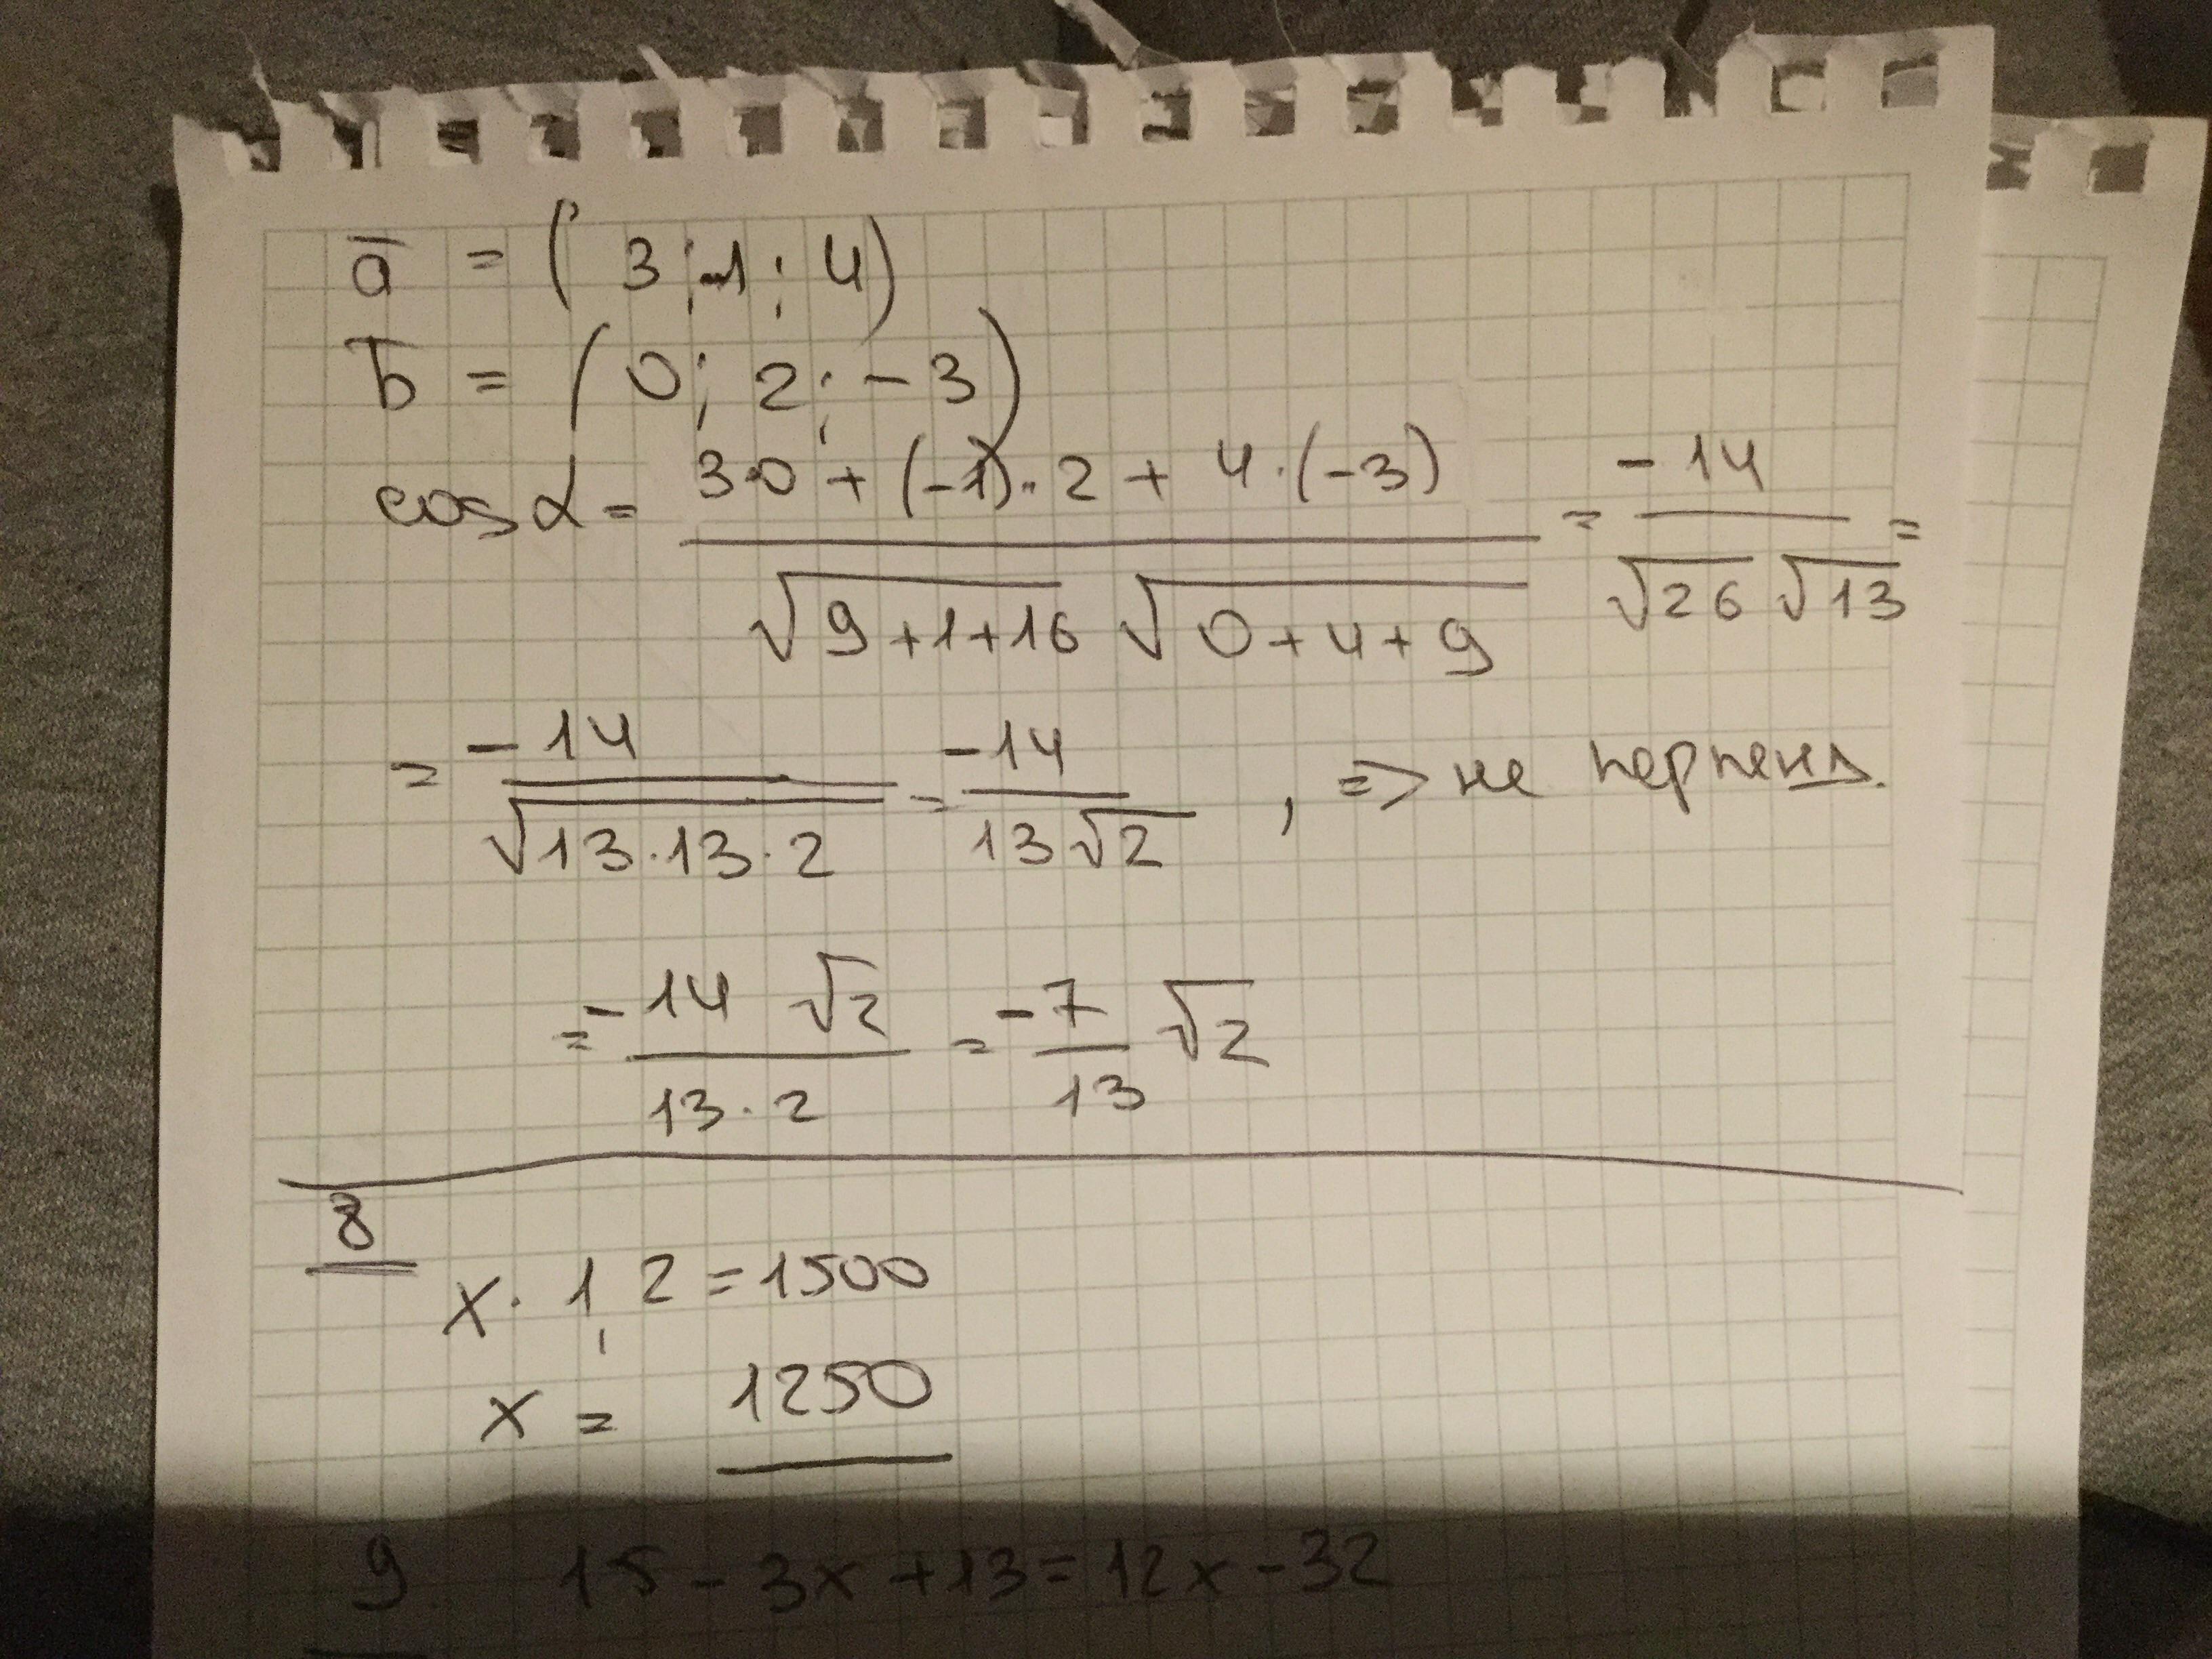 a̅ = (3; -1; 4)
b̅ = (0; 2; -3)
cos α = (3·0 + (-1)·2 + 4·(-3)) / (√(9+1+16) √(0+4+9)) = -14 / (√26 √13) =
= -14 / √(13·13·2) = -14 / (13√2) , => не перпенд.
= -14 √2 / (13·2) = -7/13 √2
8
x · 1,2 = 1500
x = 1250
9 15 - 3x + 13 = 12x - 32